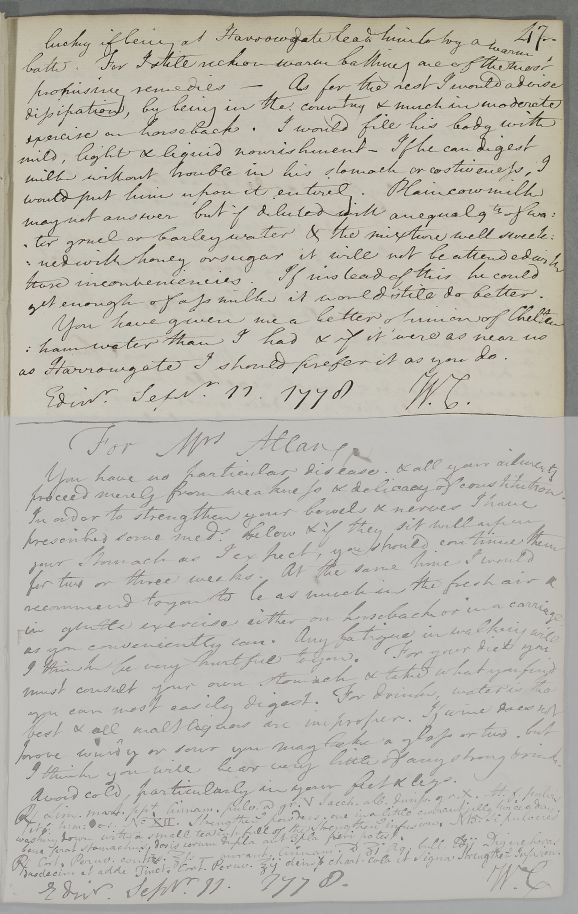 47
lucky if being at Harrowgate lead him to try a warm
bath. For I still reckon warm bathing one of the most
promising remedies — As for the rest I would advise
dissipation, by being in the country & much in moderate
exercise on horseback. I would fill his body with
mild, light & liquid nourishment — If he can digest
milk without trouble in his stomach or costiveness, I
would put him upon it entirely. Plain cow milk
may not answer but if diluted with an equal qty of wa:
:ter gruel or barley water & the mixture well sweete:
:ned with honey or sugar it will not be attended with
these inconveniencies. If instead of this he could
get enough of ass milk it would still do better.
You have given me a better opinion of Chelten
:ham water than I had & if it were as near us
as Harrowgate I should prefer it as you do.
Edinr. Septr. 11. 1778 W.C.
For Mrs Allan,
You have no particular disease. & all your ailments
proceed merely from weakness & delicacy of constitution.
In order to strengthen your bowels & nerves I have
prescribed some meds. below & if they sit well upon
your stomach as I expect, you should continue them
for two or three weeks. At the same time I would
recommend to you to be as much in the fresh air &
in gentle exercise either on horseback or in a carriage
as you conveniently can. Any fatigue in walking will
I think be very hurtful to you. For your diet you
must consult your own stomach & take what you find
you can most easily digest. For drink, water is the
best & all malt liquors are improper. If wine does not
prove windy or sour you may take a glass or two. but
I think you will bear very little of any strong drink.
Avoid cold, particularly in your feet & legs.
℞ Lim. mart. ppt. Cinnam. pulv. a gr. V Sacch. alb.
No. XII. Strengthening powders, one in a little currant jelly twice a day,
washing down with a small teacup full of the strengthening infusion.
℞ Cort. Peruv.
adde Tinct. Cort. Peruv. Signa Strengthg. Infusion
Edinr. Septr. 11. 1778. W.C.